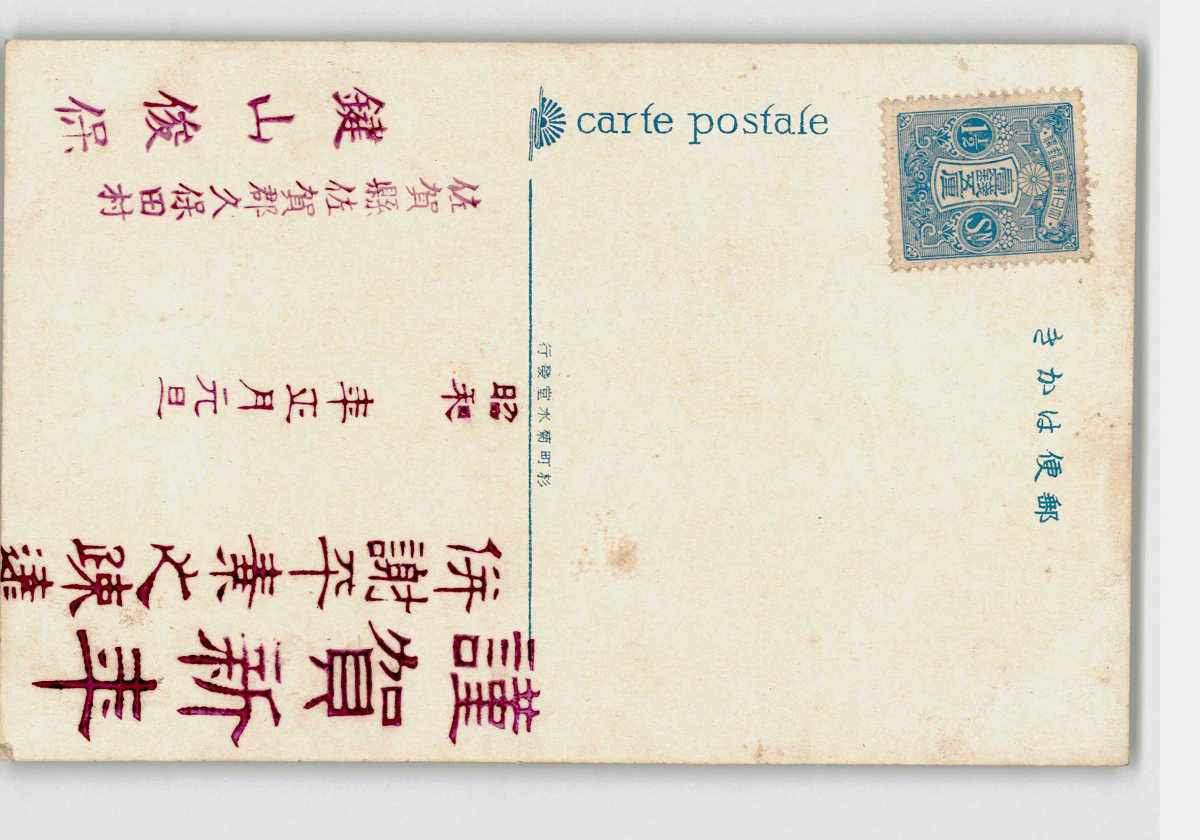 carte postale
郵便はかき
大日本帝國郵便
壹錢五厘
1½
SN
謹賀新年
併謝平素之疎遠
昭和 年正月元旦
佐賀縣佐賀郡久保田村
鍵山俊保
町菊水堂發行